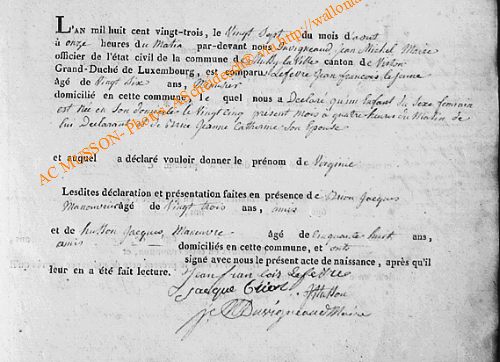 L'AN mil huit cent vingt-trois, le Vingt Sept du mois d'aout
à onze heures du Matin par-devant nous Duvigneaud, jean Michel Maire
officier de l'état civil de la commune de la Ville canton de Virton
Grand-Duché de Luxembourg, est comparu Lefevre Jean francois le jeune
âgé de Vingt Six ans,
domicilié en cette commune, le quel nous a Declaré qu'un Enfant du Sexe feminin
est née en Son Domicile le Vingt Cinq present Mois a quatre heures du Matin de
lui Declarant et de Jeanne Catherine Son Epouse
et auquel a déclaré vouloir donner le prénom de Virginie
Lesdites déclaration et présentation faites en présence de Jacques
Manouvrier âgé de Vingt trois ans, amis
et de husson Jacques, Manouvre âgé de Cinquante huit ans,
amis domiciliés en cette commune, et ont
signé avec nous le présent acte de naissance, après qu'il
leur en a été fait lecture. Jean fran cois Lefevre
jacque JHusson
J M Duvigneaud Maire
AC MOSSON- Photos Agréments@ http://wallonia